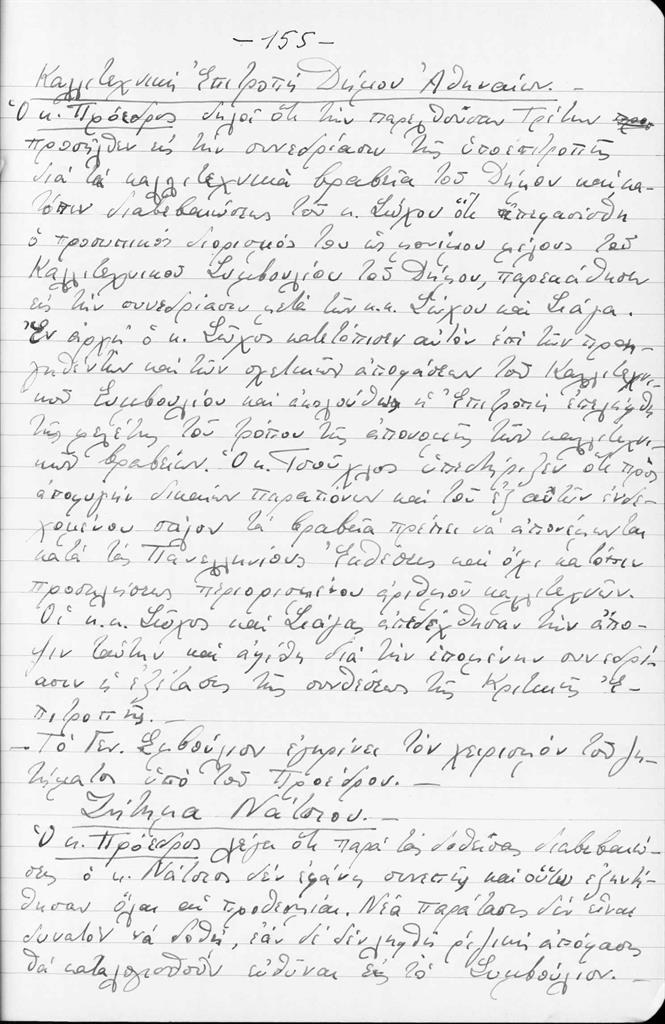 - 155 -
Καλλιτεχνική Ἐπιτροπή Δήμου Ἀθηναίων. -
Ὁ κ. Πρόεδρος δηλοῖ ὅτι τήν παρελθοῦσαν Τρίτην
προσῆλθεν εἰς τήν συνεδρίασιν τῆς ὑποεπιτροπῆς
διά τά καλλιτεχνικά βραβεῖα τοῦ Δήμου καί κα-
τόπιν διαβεβαιώσεως τοῦ κ. Σώχου ὅτι ἀπεφασίσθη
ὁ προσωπικός διορισμός του ὡς μονίμου μέλους τοῦ
Καλλιτεχνικοῦ Συμβουλίου τοῦ Δήμου, παρεκάθησεν
εἰς τήν συνεδρίασιν μετά τῶν κ.κ. Σώχου καί Σιάγα.
Ἐν ἀρχῇ ὁ κ. Σῶχος κατετόπισεν αὐτόν ἐπί τῶν προη-
γηθέντων καί τῶν σχετικῶν ἀποφάσεων τοῦ Καλλιτεχνι-
κοῦ Συμβουλίου καί ἀκολούθως ἡ Ἐπιτροπή ἐπελήφθη
τῆς μελέτης τοῦ τρόπου τῆς ἀπονομῆς τῶν καλλιτεχνι-
κῶν βραβείων. Ὁ κ. Τσούχλος ὑπεστήριξεν ὅτι πρός
ἀποφυγήν δικαίων παραπόνων καί τοῦ ἐξ αὐτῶν ἐνδε-
χομένου σάλου τά βραβεῖα πρέπει νά ἀπονέμωνται
κατά τάς Πανελληνίους Ἐκθέσεις καί ὄχι κατόπιν
προσκλήσεως περιορισμένου ἀριθμοῦ καλλιτεχνῶν.
Οἱ κ.κ. Σῶχος καί Σιάγας ἀπεδέχθησαν τήν ἄπο-
ψιν ταύτην καί ἀφέθη διά τήν ἑπομένην συνεδρί-
ασιν ἡ ἐξέτασις τῆς συνθέσεως τῆς Κριτικῆς Ἐ-
πιτροπῆς. -
- Τό Γεν. Συμβούλιον ἐγκρίνει τόν χειρισμόν τοῦ ζη-
τήματος ὑπό τοῦ Προέδρου. -
Ζήτημα Νάτσιου. -
Ὁ κ. Πρόεδρος λέγει ὅτι παρά τάς δοθείσας διαβεβαιώ-
σεις ὁ κ. Νάτσιος δέν ἐφάνη συνεπής καί οὕτω ἐξηντλή-
θησαν ὅλαι αἱ προθεσμίαι. Νέα παράτασις δέν εἶναι
δυνατόν νά δοθῇ, ἐάν δέ δέν ληφθῇ ριζική ἀπόφασις
θά καταλογισθοῦν εὐθῦναι εἰς τό Συμβούλιον. -